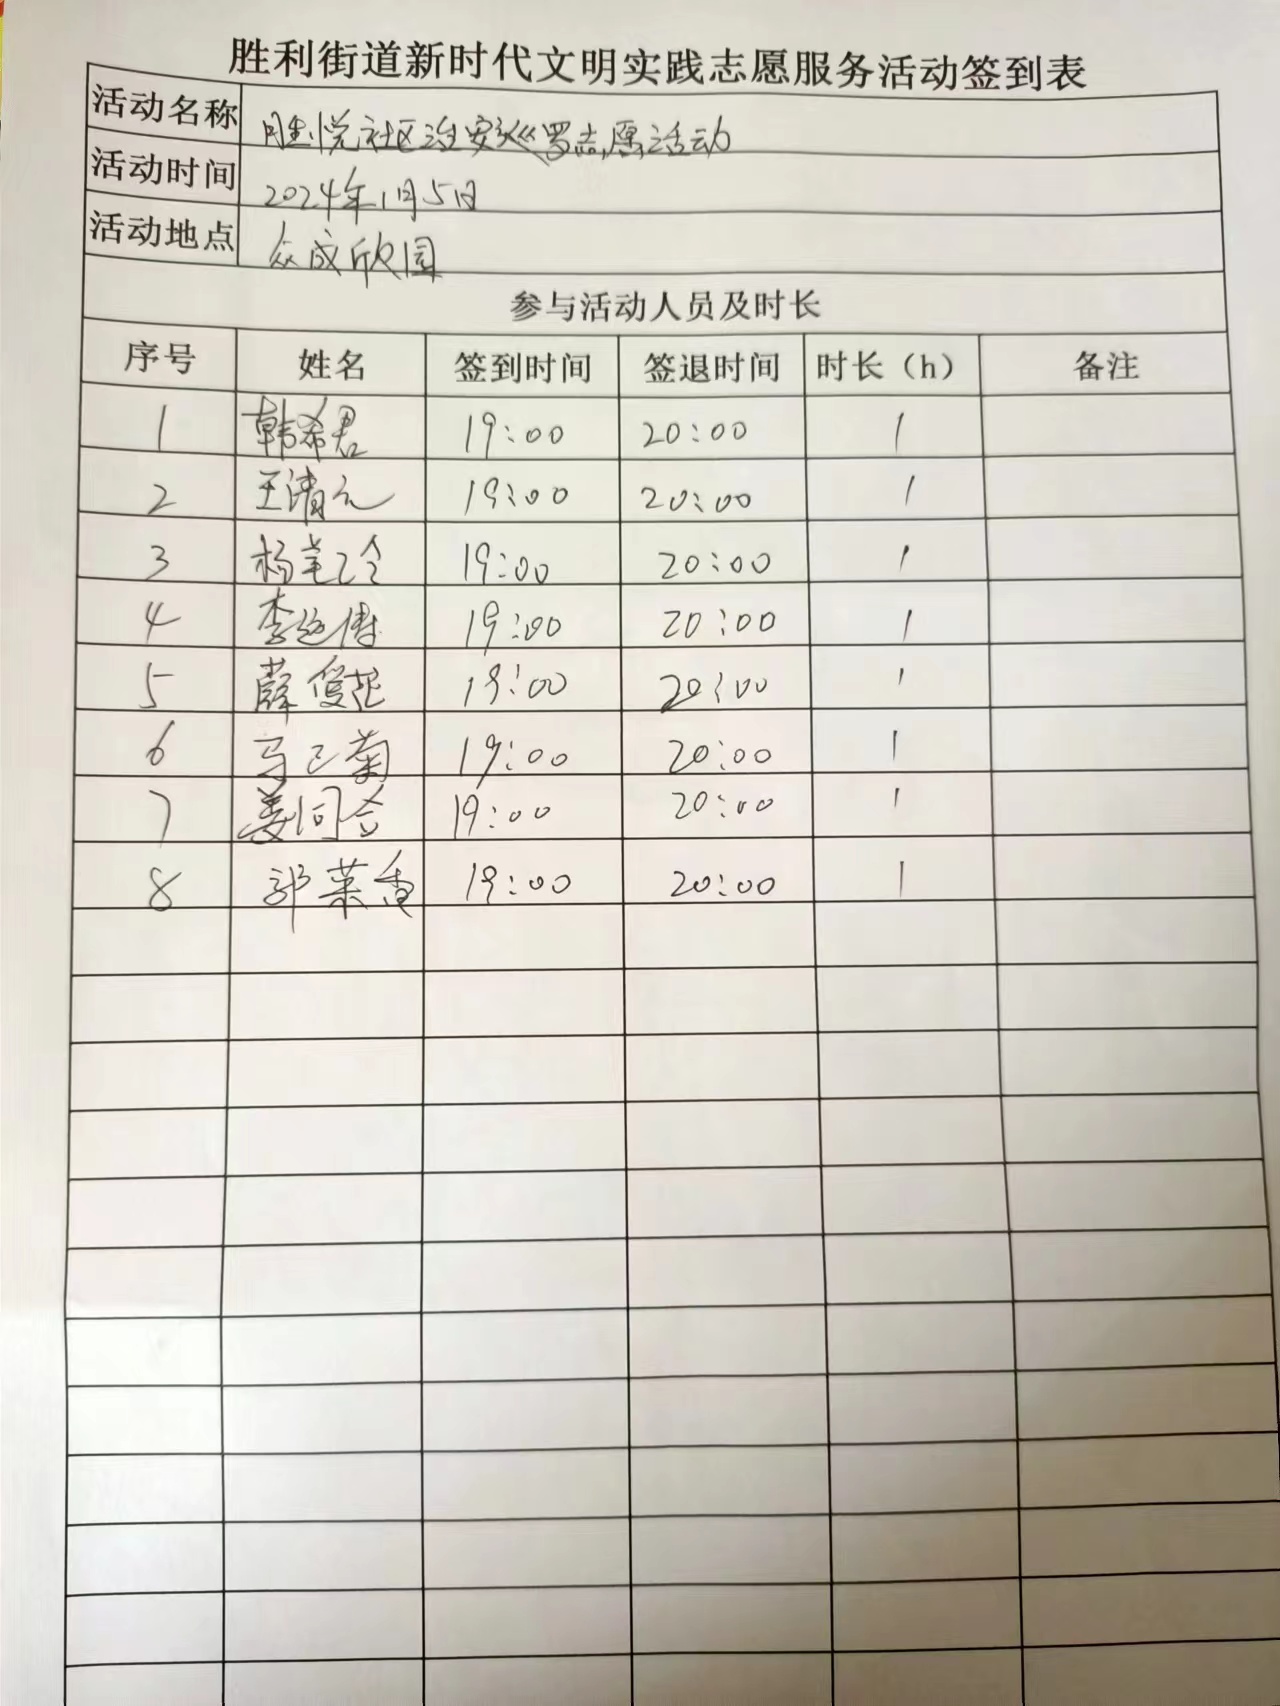 胜利街道新时代文明实践志愿服务活动签到表
活动名称 胜悦社区治安巡罗志愿活动
活动时间 2024年1月5日
活动地点 众成欣园
参与活动人员及时长
序号 姓名 签到时间 签退时间 时长（h） 备注
1 韩希君 19:00 20:00 1
2 王清元 19:00 20:00 1
3 杨 19:00 20:00 1
4 李 19:00 20:00 1
5 薛俊花 19:00 20:00 1
6 马菊 19:00 20:00 1
7 姜同合 19:00 20:00 1
8 郭菜香 19:00 20:00 1